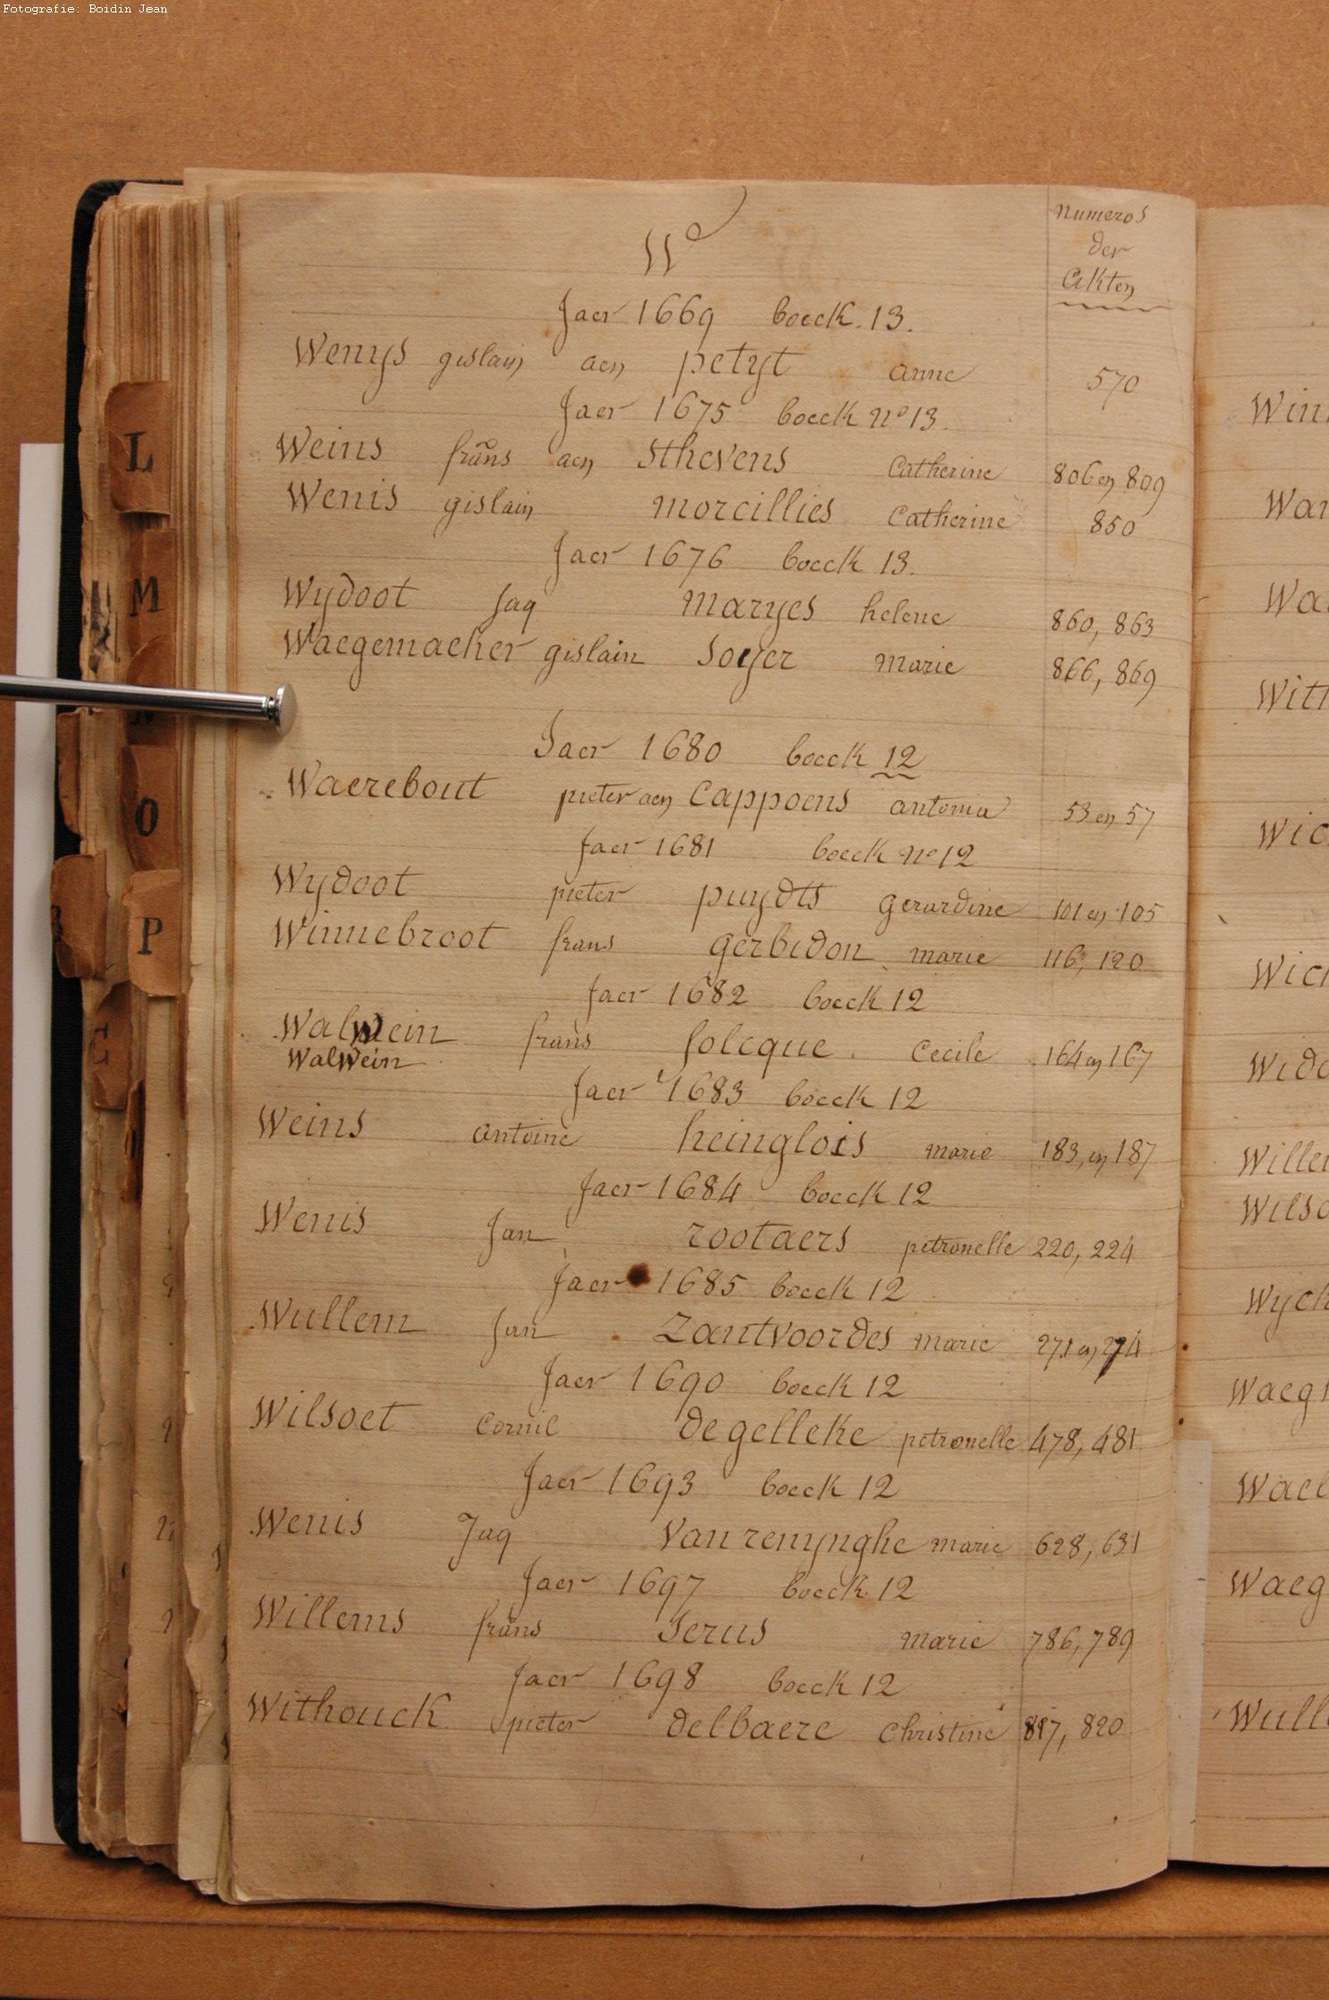 Fotografie: Boidin Jean
W
numeros
der
Akten
Jaer 1669 boeck. 13.
Wenys gislain aen petyt anne 570
Jaer 1675 boeck nº 13.
Weins frans aen Sthevens Catherine 806 en 809
Wenis gislain morcillies Catherine 850
Jaer 1676 boeck 13.
Wydoot Jaq maryes helene 860, 863
Waegemaeker gislain Soyer marie 866, 869
Jaer 1680 boeck 12
Waerebout pieter aen Cappoens antonia 53 en 57
Jaer 1681 boeck nº 12
Wydoot pieter puydts gerardine 101 en 105
Winnebroot frans gerbidon marie 116, 120
Jaer 1682 boeck 12
Walwein frans folcque Cecile 164 en 167
Walwein
Jaer 1683 boeck 12
Weins antoine heinglois marie 183, en 187
Jaer 1684 boeck 12
Wenis Jan rootaers petronelle 220, 224
Jaer 1685 boeck 12
Wullem Jan Zantvoordes marie 271 en 274
Jaer 1690 boeck 12
Wilsoet Cornil degelleke petronelle 478, 481
Jaer 1693 boeck 12
Wenis Jaq Van renynghe marie 628, 631
Jaer 1697 boeck 12
Willems frans Serus marie 786, 789
Jaer 1698 boeck 12
Withouck pieter delbaere Christine 817, 820
L
M
N
O
P